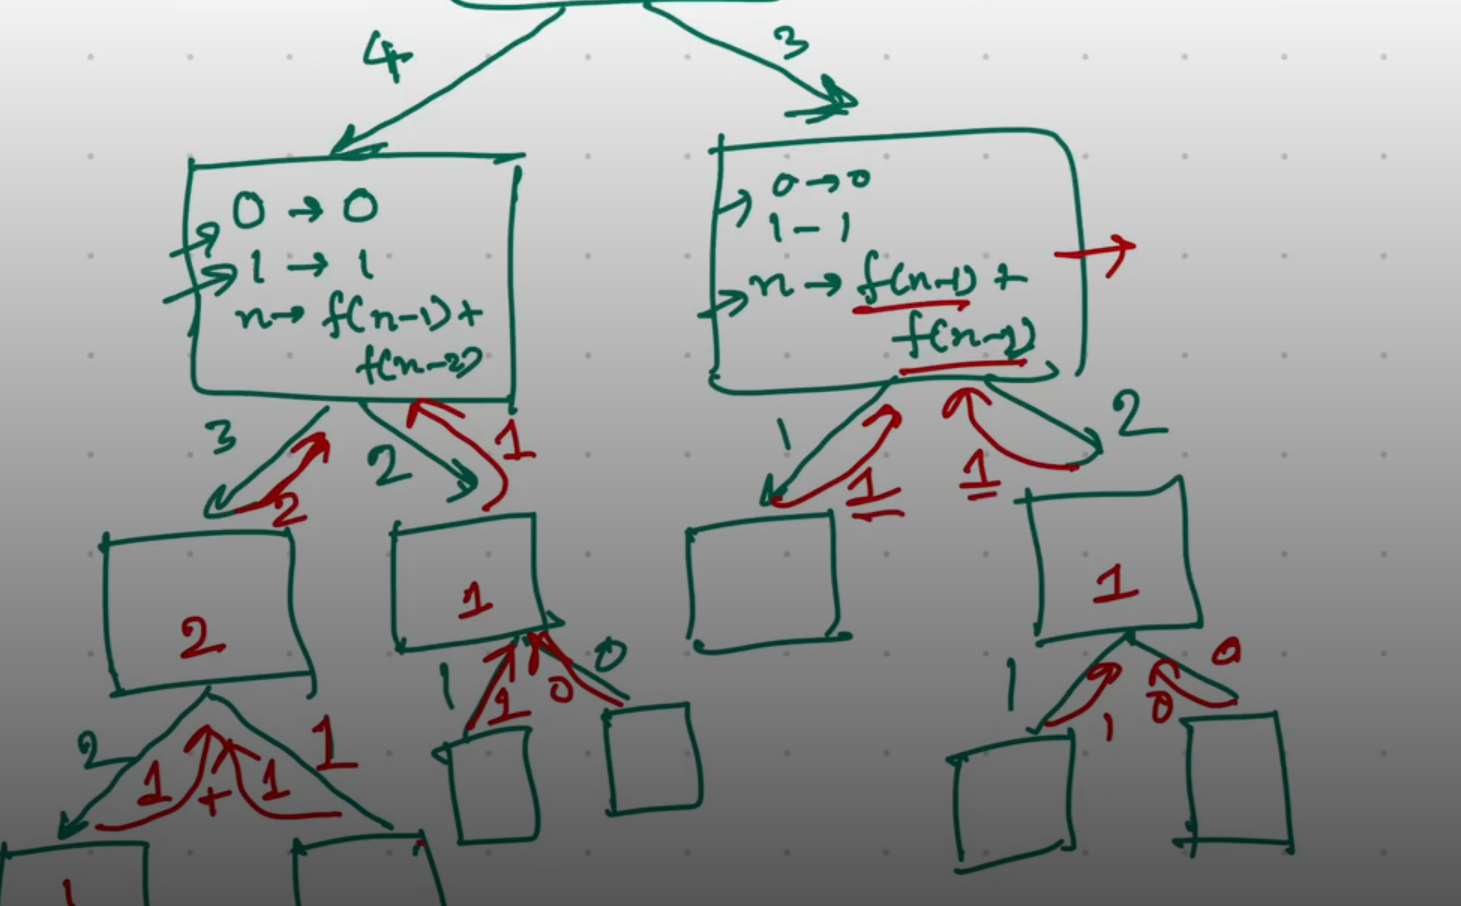 4
3
0 → 0
1 → 1
n → f(n-1) +
f(n-2)
0 → 0
1 - 1
n → f(n-1) +
f(n-2)
3
2
2
1
1
1
1
2
2
1
1
1
1
0
0
1
1
0
0
2
1
+
1
1
1